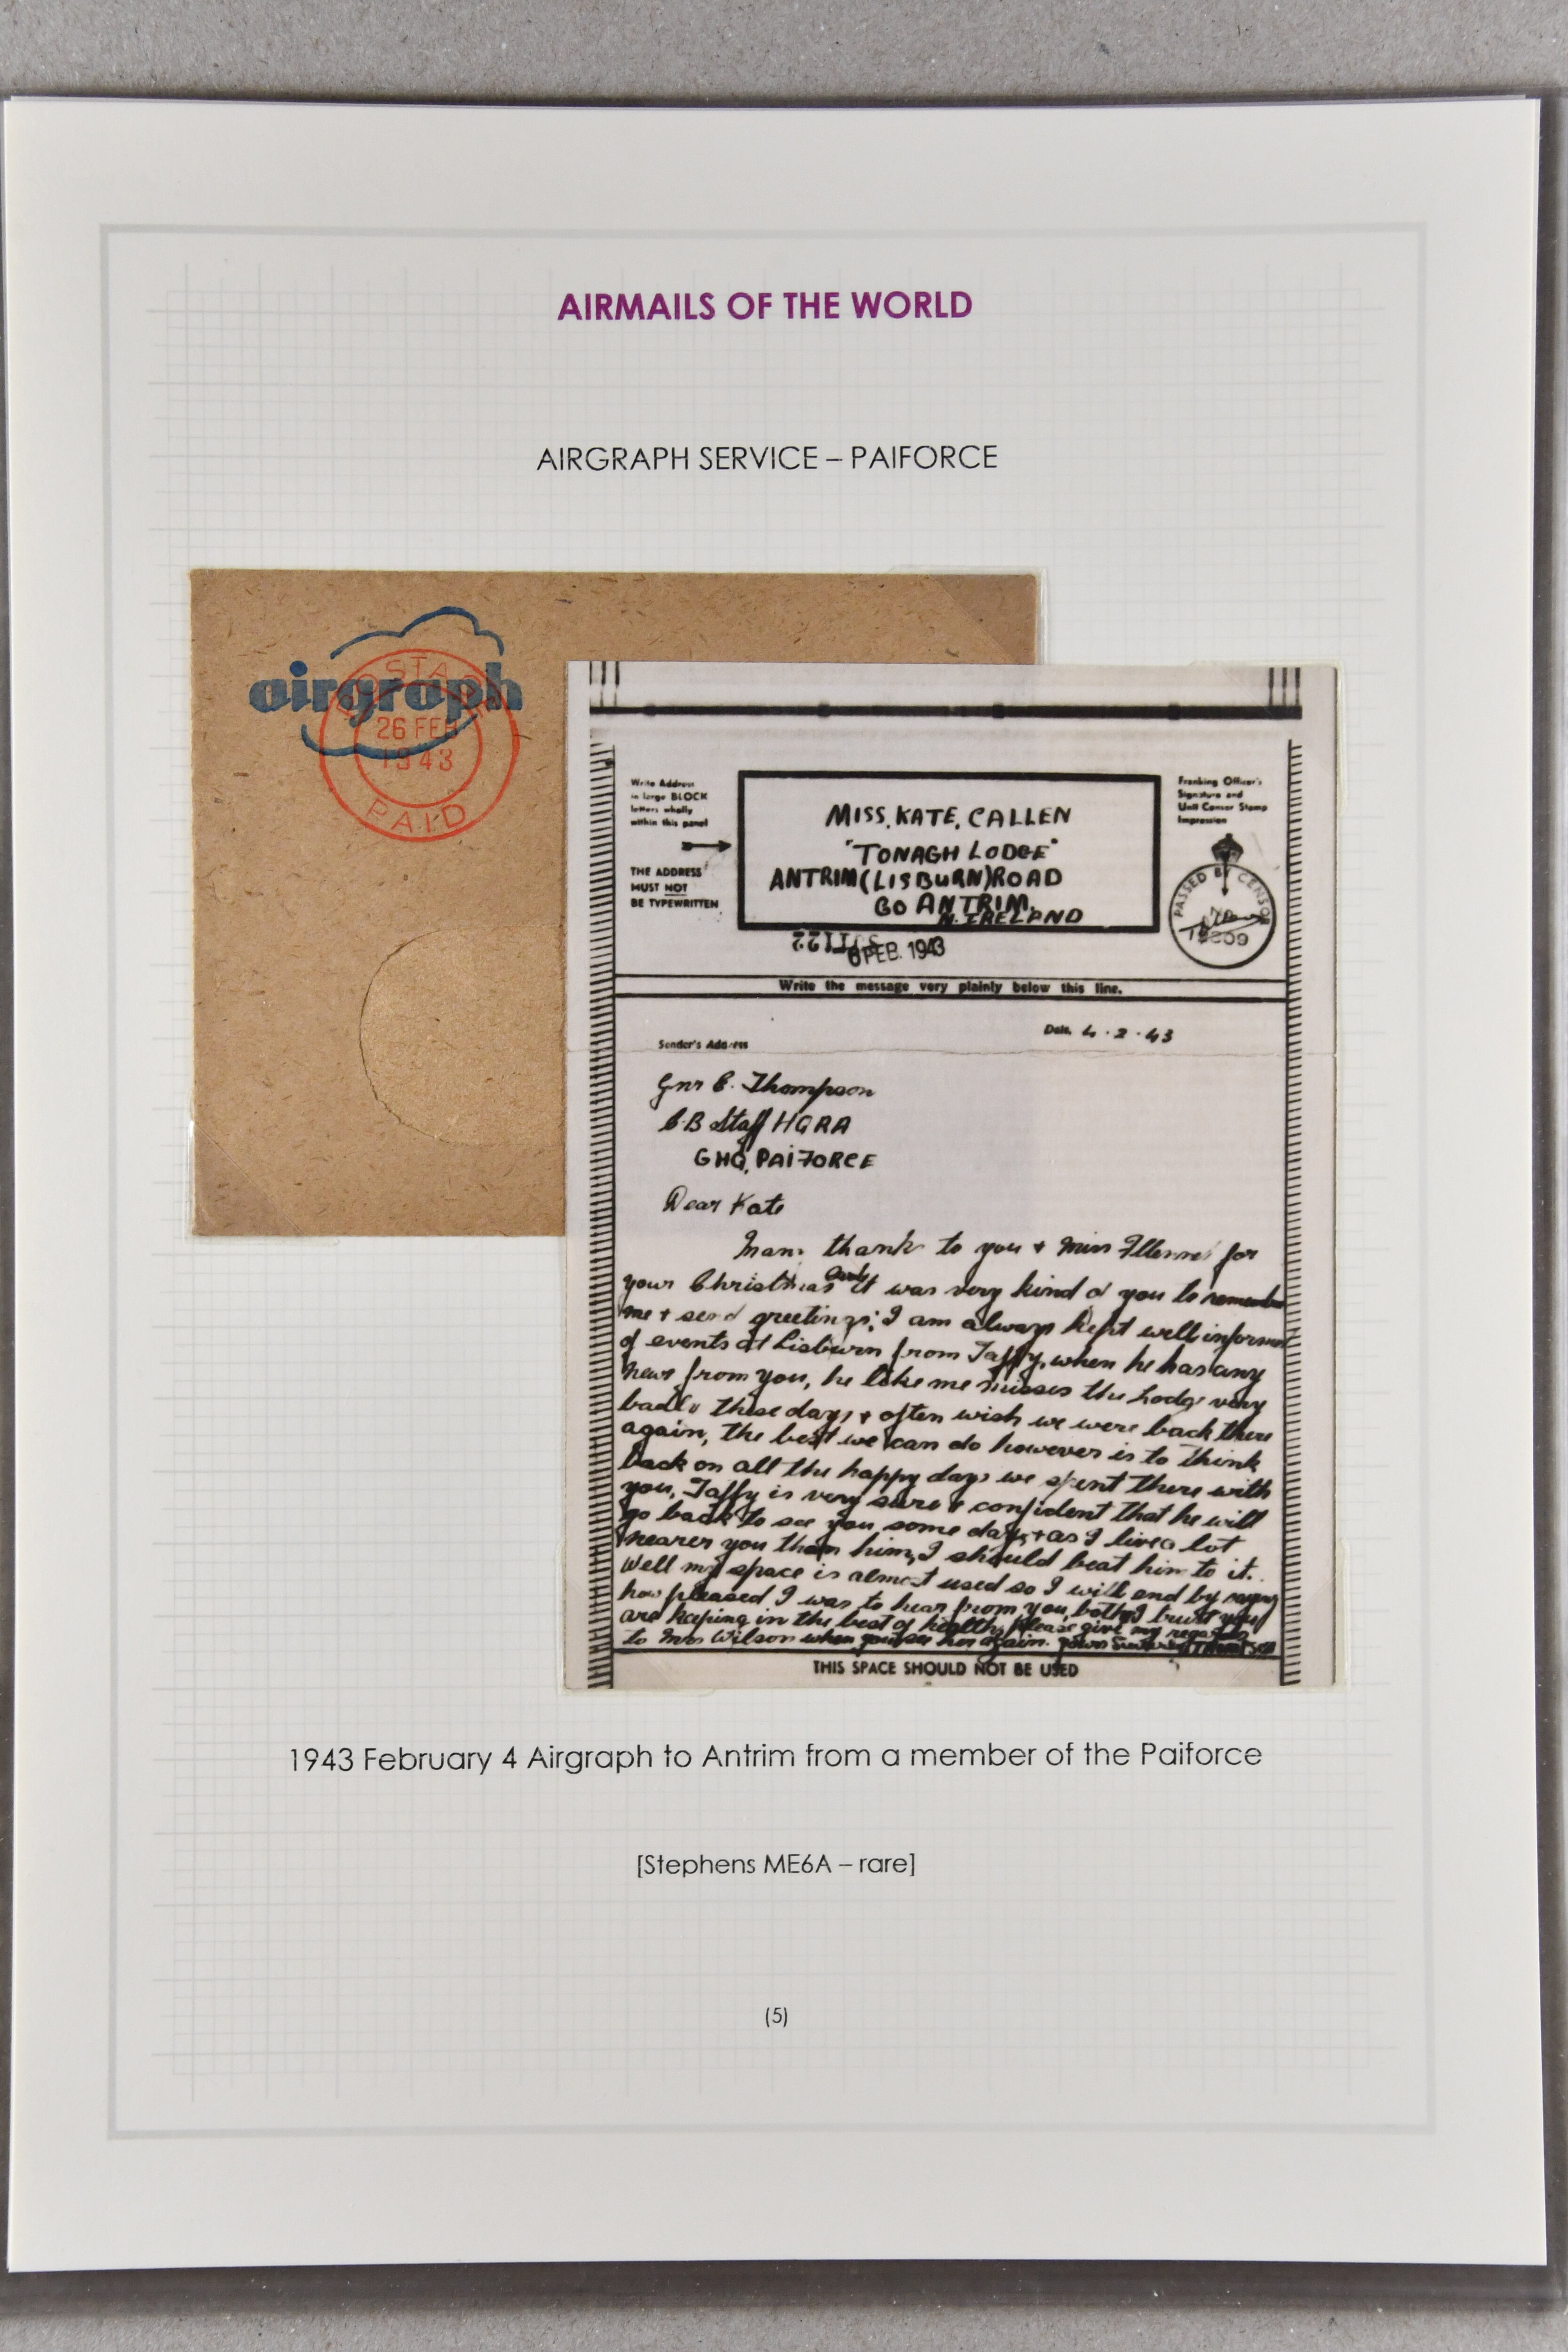 AIRMAILS OF THE WORLD
AIRGRAPH SERVICE – PAIFORCE
airgraph
POSTAGE
26 FEB
1943
PAID
Write Address
in large BLOCK
letters wholly
within this panel
THE ADDRESS
MUST NOT
BE TYPEWRITTEN
MISS. KATE. CALLEN
"TONAGH LODGE"
ANTRIM (LISBURN) ROAD
CO ANTRIM.
N. IRELAND
Franking Officer's
Signature and
Unit Censor Stamp
Impression
PASSED BY CENSOR
6 FEB. 1943
Write the message very plainly below this line.
Date. 4.2.43
Sender's Address
Gnr C. Thompson
C.B Staff HQRA
GHQ, PAIFORCE
Dear Kate
Many thanks to you + Miss for
your Christmas card it was very kind of you to remember
me + send greetings; I am always kept well informed
of events at Lisburn from Taffy, when he has any
news from you, he like me misses the Lodge very
badly these days + often wish we were back there
again, the best we can do however is to think
back on all the happy days we spent there with
you, Taffy is very sure & confident that he will
go back to see you some day, + as I live a lot
nearer you than him, I should beat him to it.
Well my space is almost used so I will end by saying
how pleased I was to hear from you both, I trust you
are keeping in the best of health, Please give my regards
to Mrs Wilson when you see her again. yours Sincerely Thompson
THIS SPACE SHOULD NOT BE USED
1943 February 4 Airgraph to Antrim from a member of the Paiforce
[Stephens ME6A – rare]
(5)